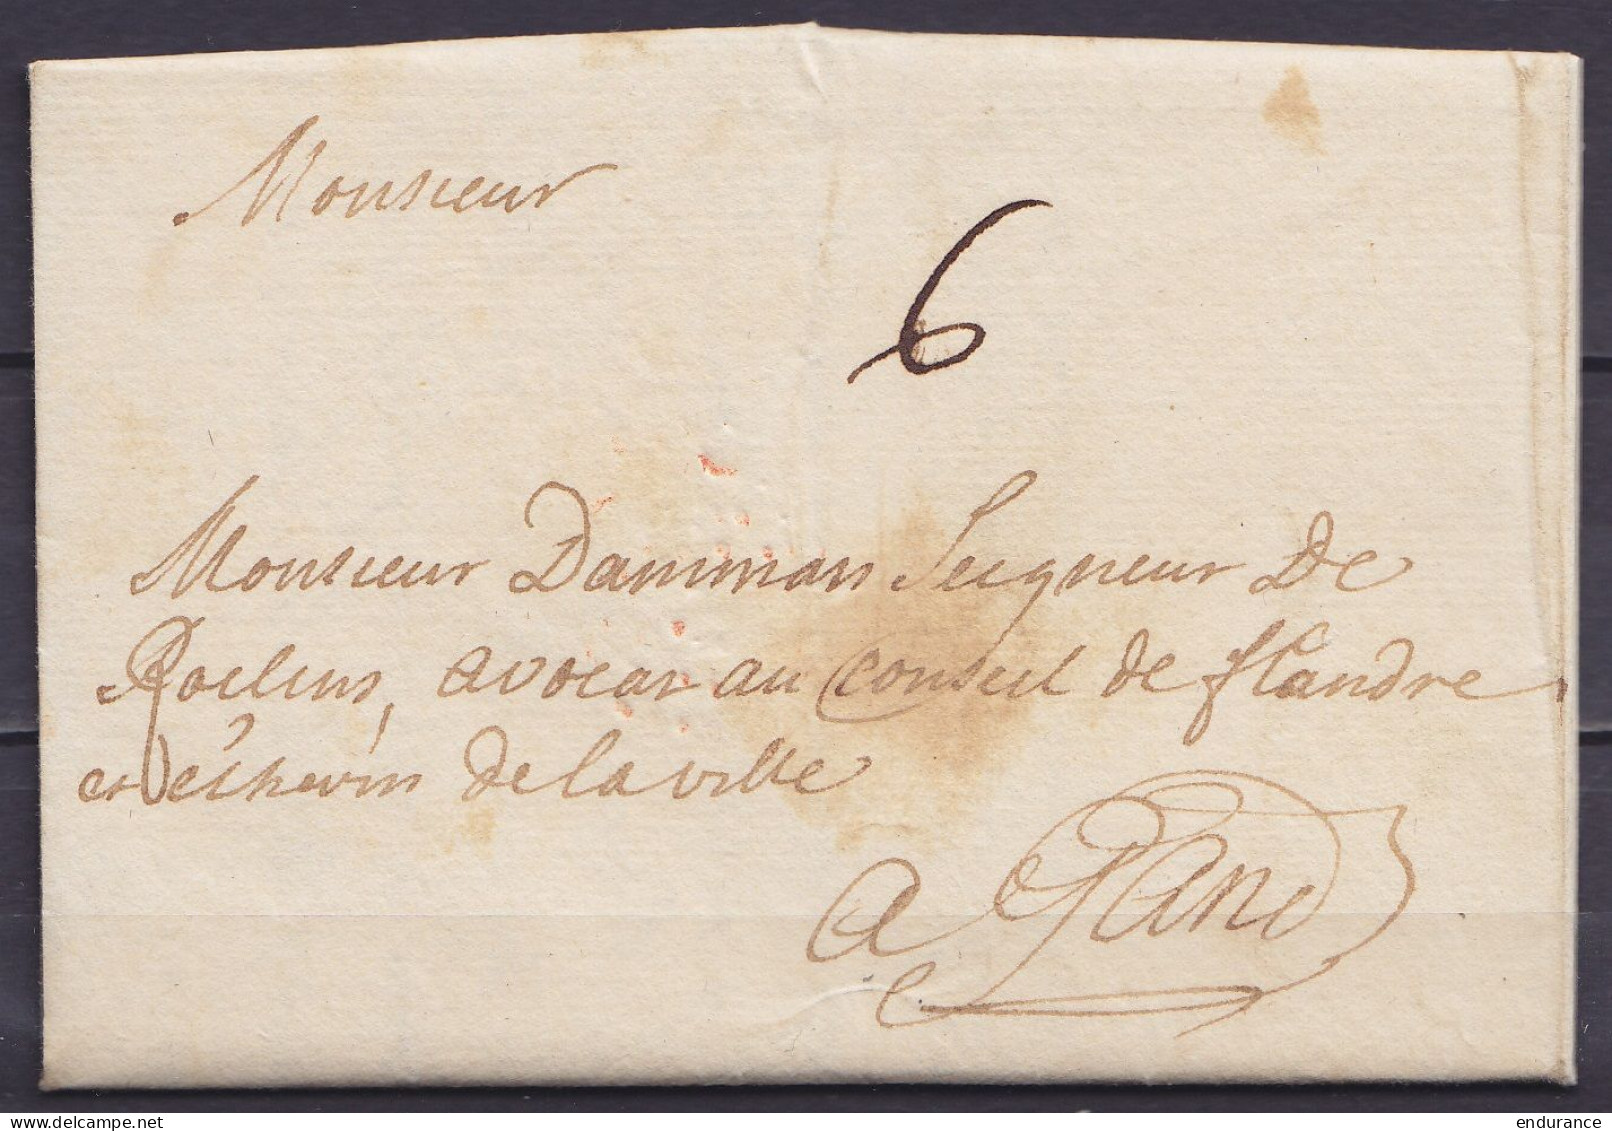 Monsieur
6
Monsieur Damman Seigneur De
avocat au Conseil de flandre
et echevin de la ville
a Gand
endurance